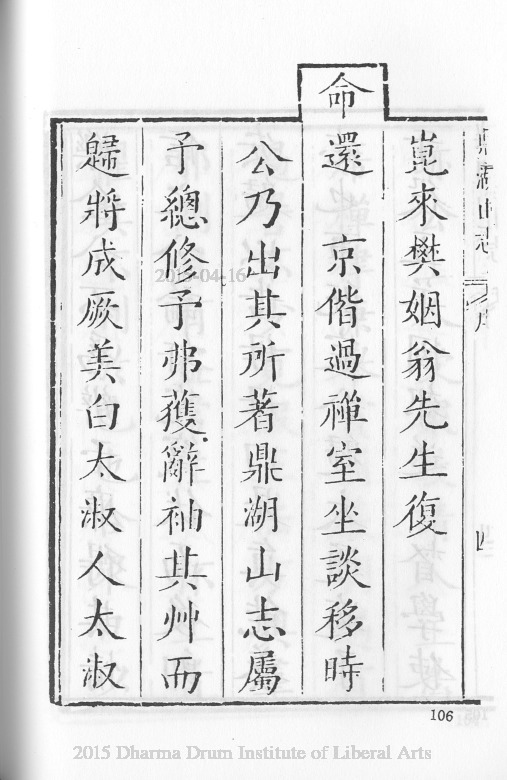 崑來樊姻翁先生復
命
還 京偕過禪室坐談移時
公乃出其所著鼎湖山志屬
予總修予弗獲辭袖其艸而
歸將成厥美白太淑人太淑
鼎湖山志
序
四
106
2015-04-16
2015 Dharma Drum Institute of Liberal Arts